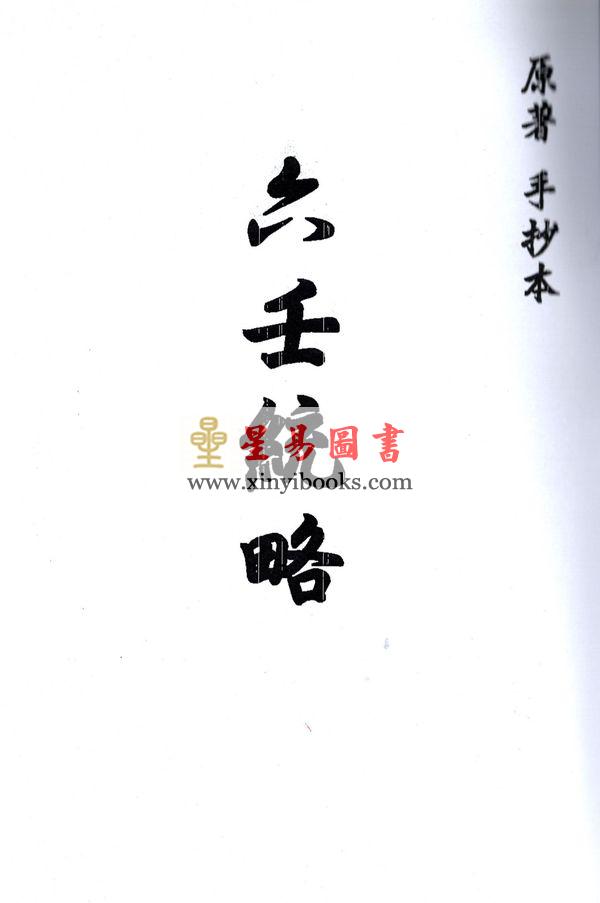 原著 手抄本
六壬統略
星易圖書
www.xinyibooks.com